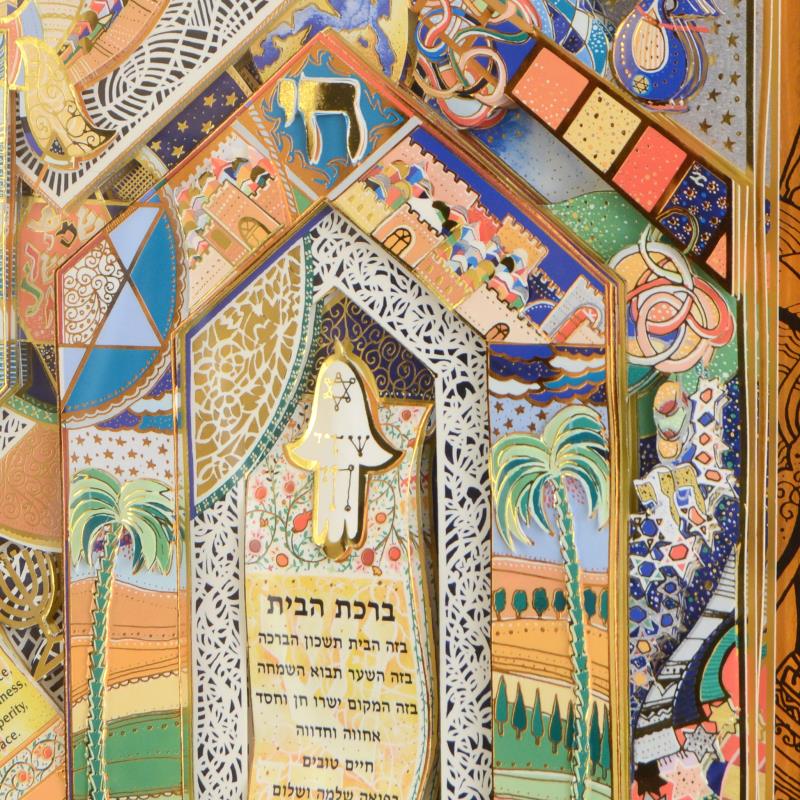 חי
ברכת הבית
בזה הבית תשכון הברכה
בזה השער תבוא השמחה
בזה המקום ישרו חן וחסד
אחווה וחדווה
חיים טובים
רפואה שלמה ושלום